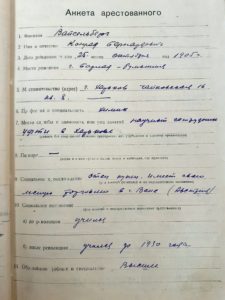 Анкета арестованного
1. Фамилия Вайсельберг
2. Имя и отчество Конрад Бернардович
3. Дата рождения: число 26 месяц октября год 1905 г.
4. Место рождения г. Румыния
5. Местожительство (адрес) г. Харьков Чайковская 16
кв. 8.
6. Профессия и специальность химик
7. Место службы и должность или род занятий научный сотрудник
УФТИ в Харькове
8. Паспорт —
9. Социальное происхождение отец имел свою
в г. Вена (Австрия)
10. Социальное положение
а) до революции учился
б) после революции учился до 1930 года
11. Образование (общее и специальное) Высшее